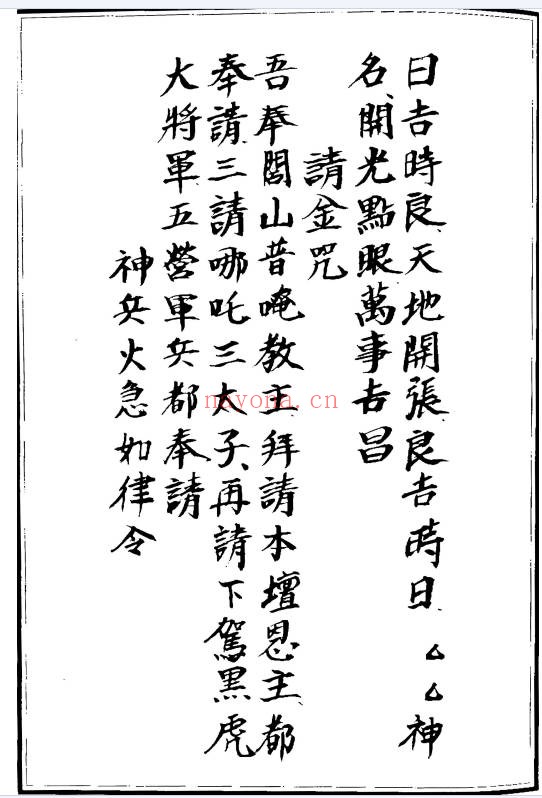 日吉時良天地開張良吉時日△△神
名開光點眼萬事吉昌
請金咒
吾奉閭山普唵教主拜請本壇恩主都
奉請三請哪吒三太子再請下駕黑虎
大將軍五營軍兵都奉請
神兵火急如律令
nayona.cn